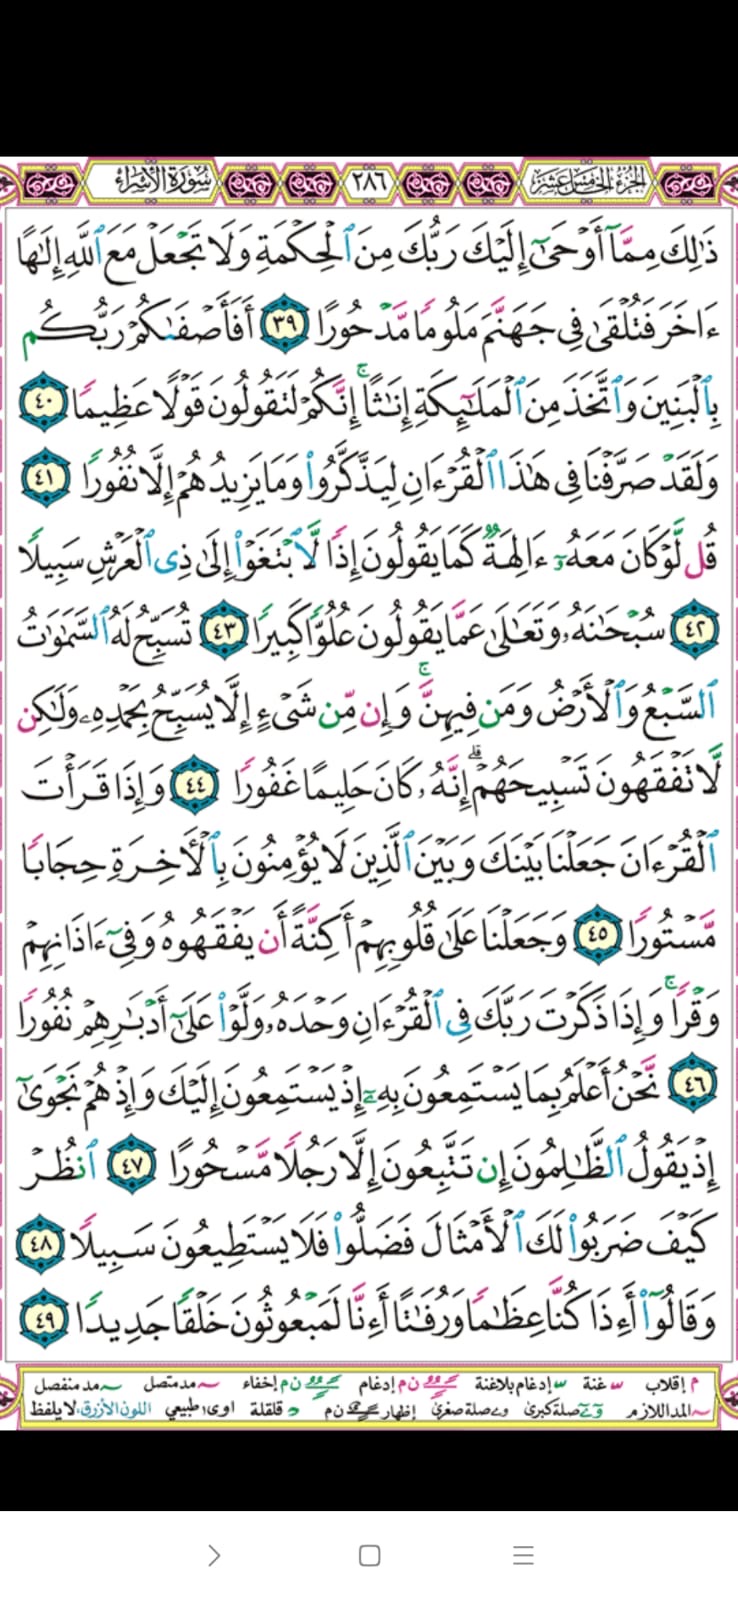 الجزء الخامس عشر ٢٨٦ سورة الإسراء
ذَٰلِكَ مِمَّآ أَوْحَىٰٓ إِلَيْكَ رَبُّكَ مِنَ ٱلْحِكْمَةِ وَلَا تَجْعَلْ مَعَ ٱللَّهِ إِلَٰهًا
ءَاخَرَ فَتُلْقَىٰ فِى جَهَنَّمَ مَلُومًا مَّدْحُورًا ٣٩ أَفَأَصْفَىٰكُمْ رَبُّكُم
بِٱلْبَنِينَ وَٱتَّخَذَ مِنَ ٱلْمَلَٰٓئِكَةِ إِنَٰثًا ۚ إِنَّكُمْ لَتَقُولُونَ قَوْلًا عَظِيمًا ٤٠
وَلَقَدْ صَرَّفْنَا فِى هَٰذَا ٱلْقُرْءَانِ لِيَذَّكَّرُوا۟ وَمَا يَزِيدُهُمْ إِلَّا نُفُورًا ٤١
قُل لَّوْ كَانَ مَعَهُۥٓ ءَالِهَةٌ كَمَا يَقُولُونَ إِذًا لَّٱبْتَغَوْا۟ إِلَىٰ ذِى ٱلْعَرْشِ سَبِيلًا
٤٢ سُبْحَٰنَهُۥ وَتَعَٰلَىٰ عَمَّا يَقُولُونَ عُلُوًّا كَبِيرًا ٤٣ تُسَبِّحُ لَهُ ٱلسَّمَٰوَٰتُ
ٱلسَّبْعُ وَٱلْأَرْضُ وَمَن فِيهِنَّ ۚ وَإِن مِّن شَىْءٍ إِلَّا يُسَبِّحُ بِحَمْدِهِۦ وَلَٰكِن
لَّا تَفْقَهُونَ تَسْبِيحَهُمْ ۗ إِنَّهُۥ كَانَ حَلِيمًا غَفُورًا ٤٤ وَإِذَا قَرَأْتَ
ٱلْقُرْءَانَ جَعَلْنَا بَيْنَكَ وَبَيْنَ ٱلَّذِينَ لَا يُؤْمِنُونَ بِٱلْءَاخِرَةِ حِجَابًا
مَّسْتُورًا ٤٥ وَجَعَلْنَا عَلَىٰ قُلُوبِهِمْ أَكِنَّةً أَن يَفْقَهُوهُ وَفِىٓ ءَاذَانِهِمْ
وَقْرًا ۚ وَإِذَا ذَكَرْتَ رَبَّكَ فِى ٱلْقُرْءَانِ وَحْدَهُۥ وَلَّوْا۟ عَلَىٰٓ أَدْبَٰرِهِمْ نُفُورًا
٤٦ نَّحْنُ أَعْلَمُ بِمَا يَسْتَمِعُونَ بِهِۦٓ إِذْ يَسْتَمِعُونَ إِلَيْكَ وَإِذْ هُمْ نَجْوَىٰٓ
إِذْ يَقُولُ ٱلظَّٰلِمُونَ إِن تَتَّبِعُونَ إِلَّا رَجُلًا مَّسْحُورًا ٤٧ ٱنظُرْ
كَيْفَ ضَرَبُوا۟ لَكَ ٱلْأَمْثَالَ فَضَلُّوا۟ فَلَا يَسْتَطِيعُونَ سَبِيلًا ٤٨
وَقَالُوٓا۟ أَءِذَا كُنَّا عِظَٰمًا وَرُفَٰتًا أَءِنَّا لَمَبْعُوثُونَ خَلْقًا جَدِيدًا ٤٩
م إقلاب غنة إدغام بلاغنة ن م إدغام ن م إخفاء مد متصل مد منفصل
المد اللازم صلة كبرى صلة صغرى إظهار ن م قلقلة اوى طبيعي اللون الأزرق، لا يلفظ